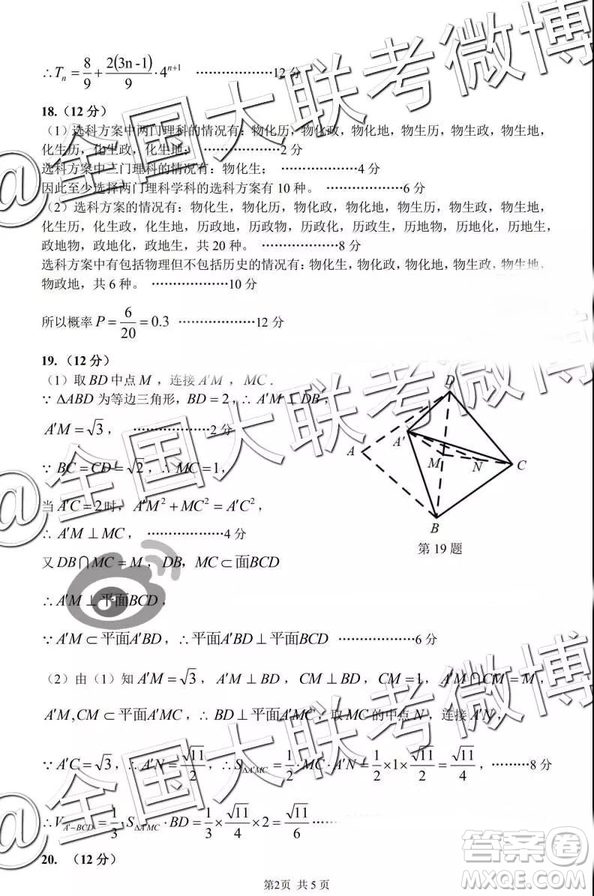 ∴T_n = 8/9 + 2(3n-1)/9 · 4^{n+1} ………………12 分
18.(12 分)
（1）选科方案中两门理科的情况有：物化历，物化政，物化地，物生历，物生政，物生地，
化生历，化生政，化生地； ………………2 分
选科方案中三门理科的情况有：物化生； ………………4 分
因此至少选择两门理科学科的选科方案有 10 种。 ………………6 分
（2）选科方案的情况有：物化生，物化历，物化政，物化地，物生历，物生政，物生地，
化生历，化生政，化生地，历政地，历政物，历政化，历政生，历地物，历地化，历地生，
政地物，政地化，政地生，共 20 种。 ………………8 分
选科方案中有包括物理但不包括历史的情况有：物化生，物化政，物化地，物生政，物生地，
物政地，共 6 种。 ………………10 分
所以概率 P = 6/20 = 0.3 ………………12 分
19.（12 分）
（1）取 BD 中点 M ，连接 A′M ，MC．
∵ ΔABD 为等边三角形，BD = 2，∴ A′M ⊥ DB，
A′M = √3， ………………2 分
∵ BC = CD = √2，∴ MC = 1，
当 A′C = 2 时，A′M² + MC² = A′C²
∴ A′M ⊥ MC， ………………4 分
又 DB ⋂ MC = M，DB，MC ⊂ 面BCD
∴ A′M ⊥ 平面BCD，
∵ A′M ⊂ 平面A′BD，∴ 平面A′BD ⊥ 平面BCD ………………6 分
D
A′
A
M
N
C
B
第 19 题
（2）由（1）知 A′M = √3，A′M ⊥ BD，CM ⊥ BD，CM = 1，A′M ⋂ CM = M，
A′M, CM ⊂ 平面A′MC，∴ BD ⊥ 平面A′MC，取 MC 的中点 N，连接 A′N，
∵ A′C = √3，∴ A′N = √11/2，∴ S_{ΔA′MC} = 1/2 · MC · A′N = 1/2 × 1 × √11/2 = √11/4，………8 分
∴ V_{A′−BCD} = 1/3 S_{ΔA′MC} · BD = 1/3 × √11/4 × 2 = √11/6 ………………10 分
20. （12 分）
第2页 共 5 页
@全国大联考微博
@全国大联考微博
@全国大联考微博
答案圈
MXQE.COM